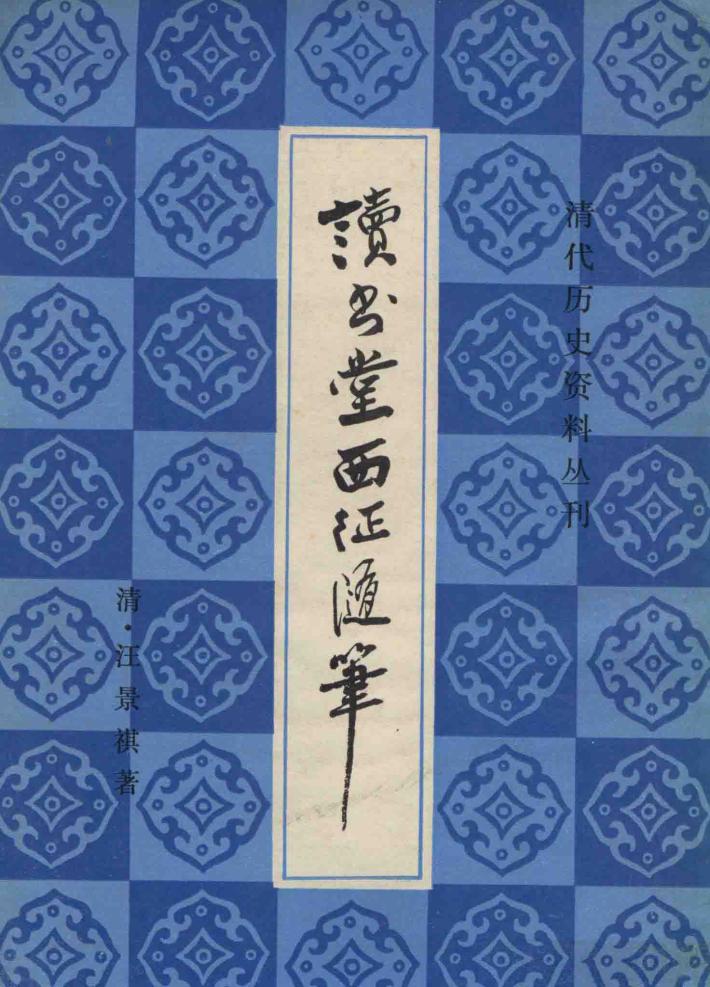 清代历史资料丛刊
讀书堂西征随筆
清·汪景祺著